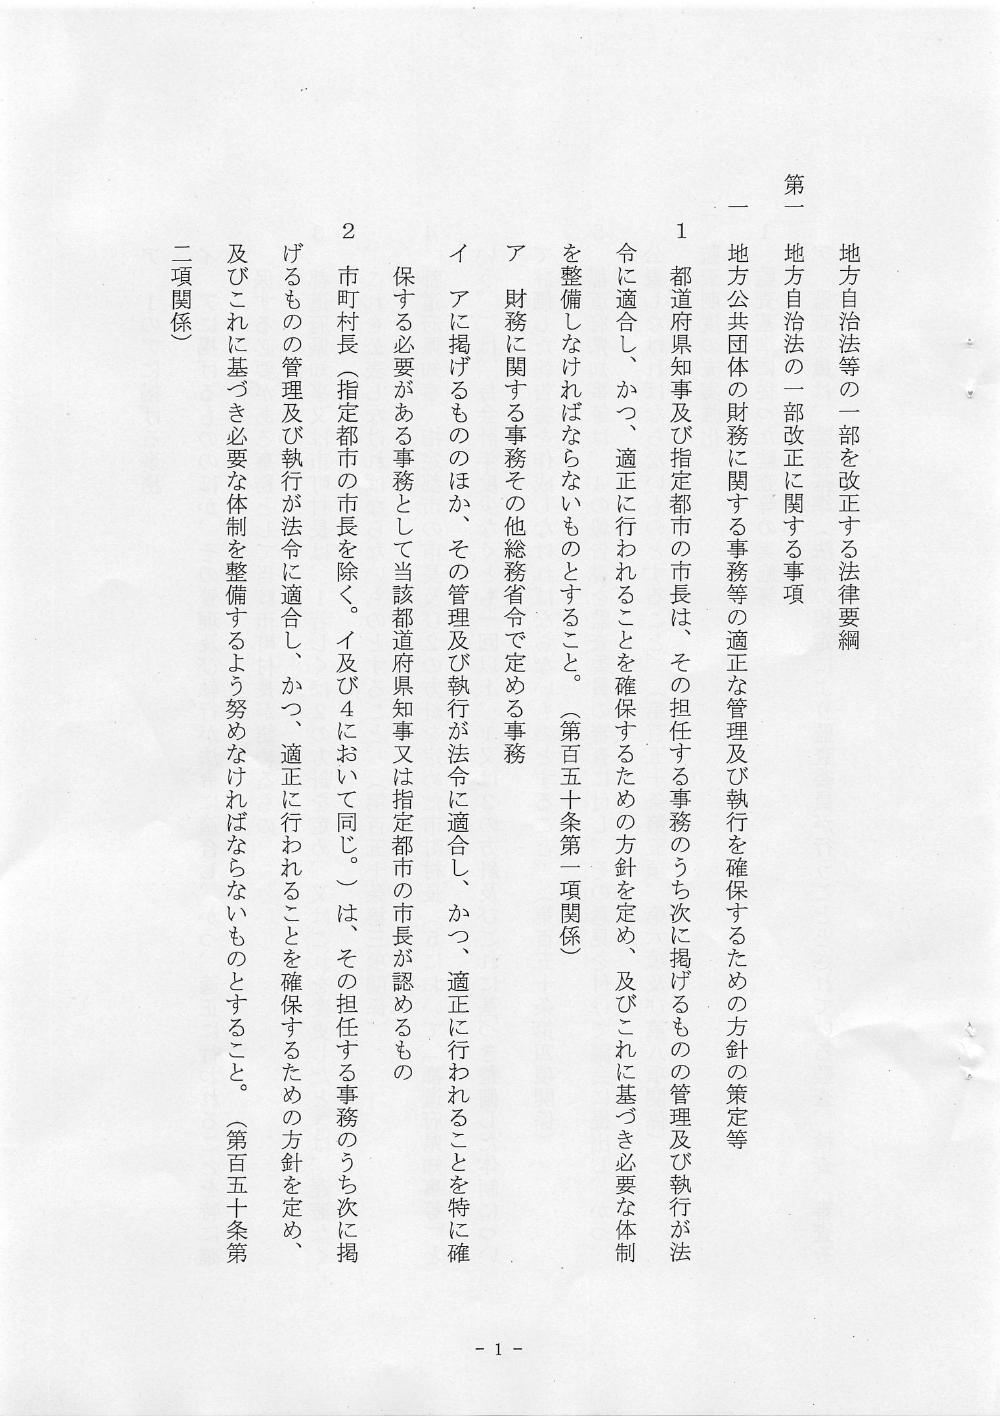 地方自治法等の一部を改正する法律要綱
第一　地方自治法の一部改正に関する事項
一　地方公共団体の財務に関する事務等の適正な管理及び執行を確保するための方針の策定等
１　都道府県知事及び指定都市の市長は、その担任する事務のうち次に掲げるものの管理及び執行が法
令に適合し、かつ、適正に行われることを確保するための方針を定め、及びこれに基づき必要な体制
を整備しなければならないものとすること。（第百五十条第一項関係）
ア　財務に関する事務その他総務省令で定める事務
イ　アに掲げるもののほか、その管理及び執行が法令に適合し、かつ、適正に行われることを特に確
保する必要がある事務として当該都道府県知事又は指定都市の市長が認めるもの
２　市町村長（指定都市の市長を除く。イ及び４において同じ。）は、その担任する事務のうち次に掲
げるものの管理及び執行が法令に適合し、かつ、適正に行われることを確保するための方針を定め、
及びこれに基づき必要な体制を整備するよう努めなければならないものとすること。（第百五十条第
二項関係）
- 1 -